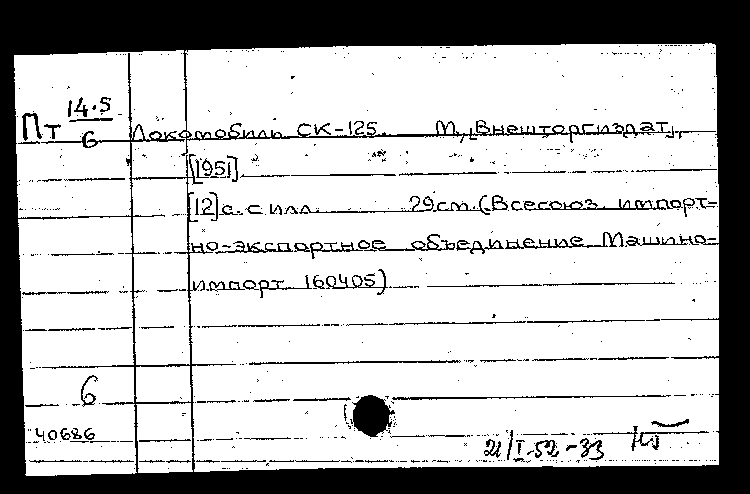 Пт 14.5/6 Локомобиль СК-125. М, „Внешторгиздат",
[1951]
[12]с. с илл. 29см. (Всесоюз. импорт-
но-экспортное объединение Машино-
импорт 160405)
6
40686
21/I-52-33